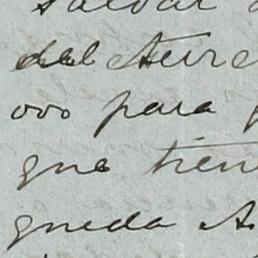 salvar
del Aure
ovo para
que tien
queda A